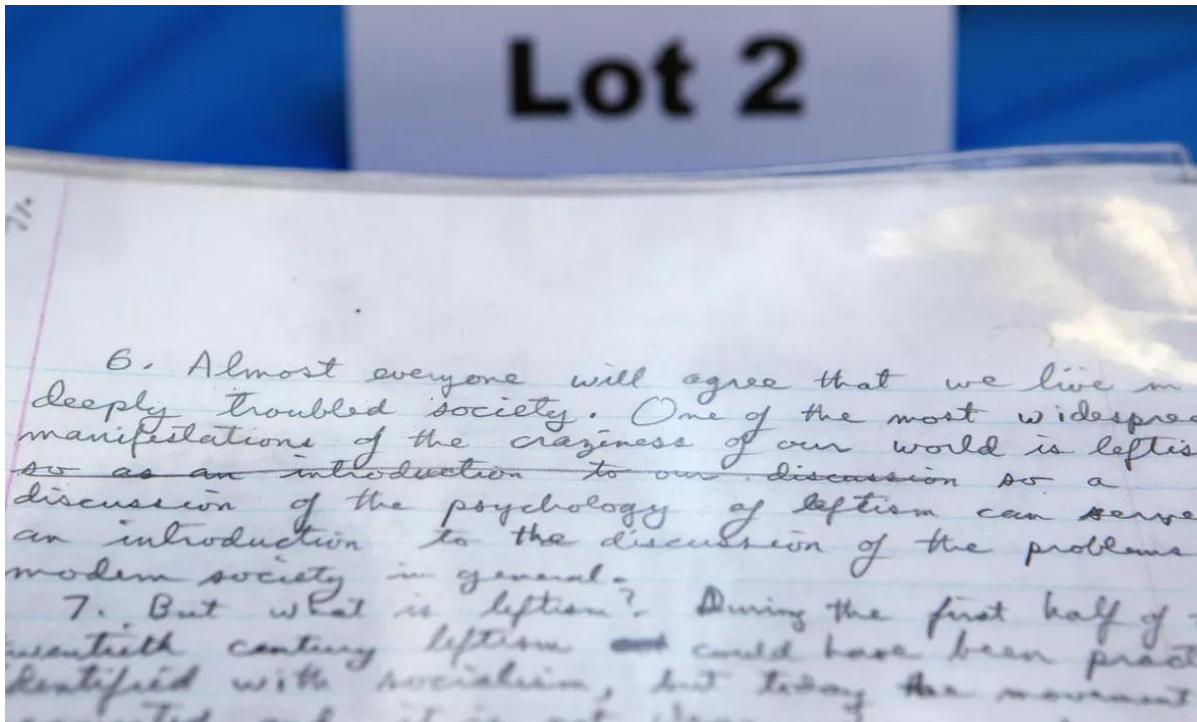 Lot 2
6. Almost everyone will agree that we live in
deeply troubled society. One of the most widesprea
manifestations of the craziness of our world is leftis
so as an introduction to our discussion so a
discussion of the psychology of leftism can serve
an introduction to the discussion of the problems
modern society in general.
7. But what is leftism? During the first half of
wentieth century leftism could have been pract
dentified with socialism, but today the movement
and it is not